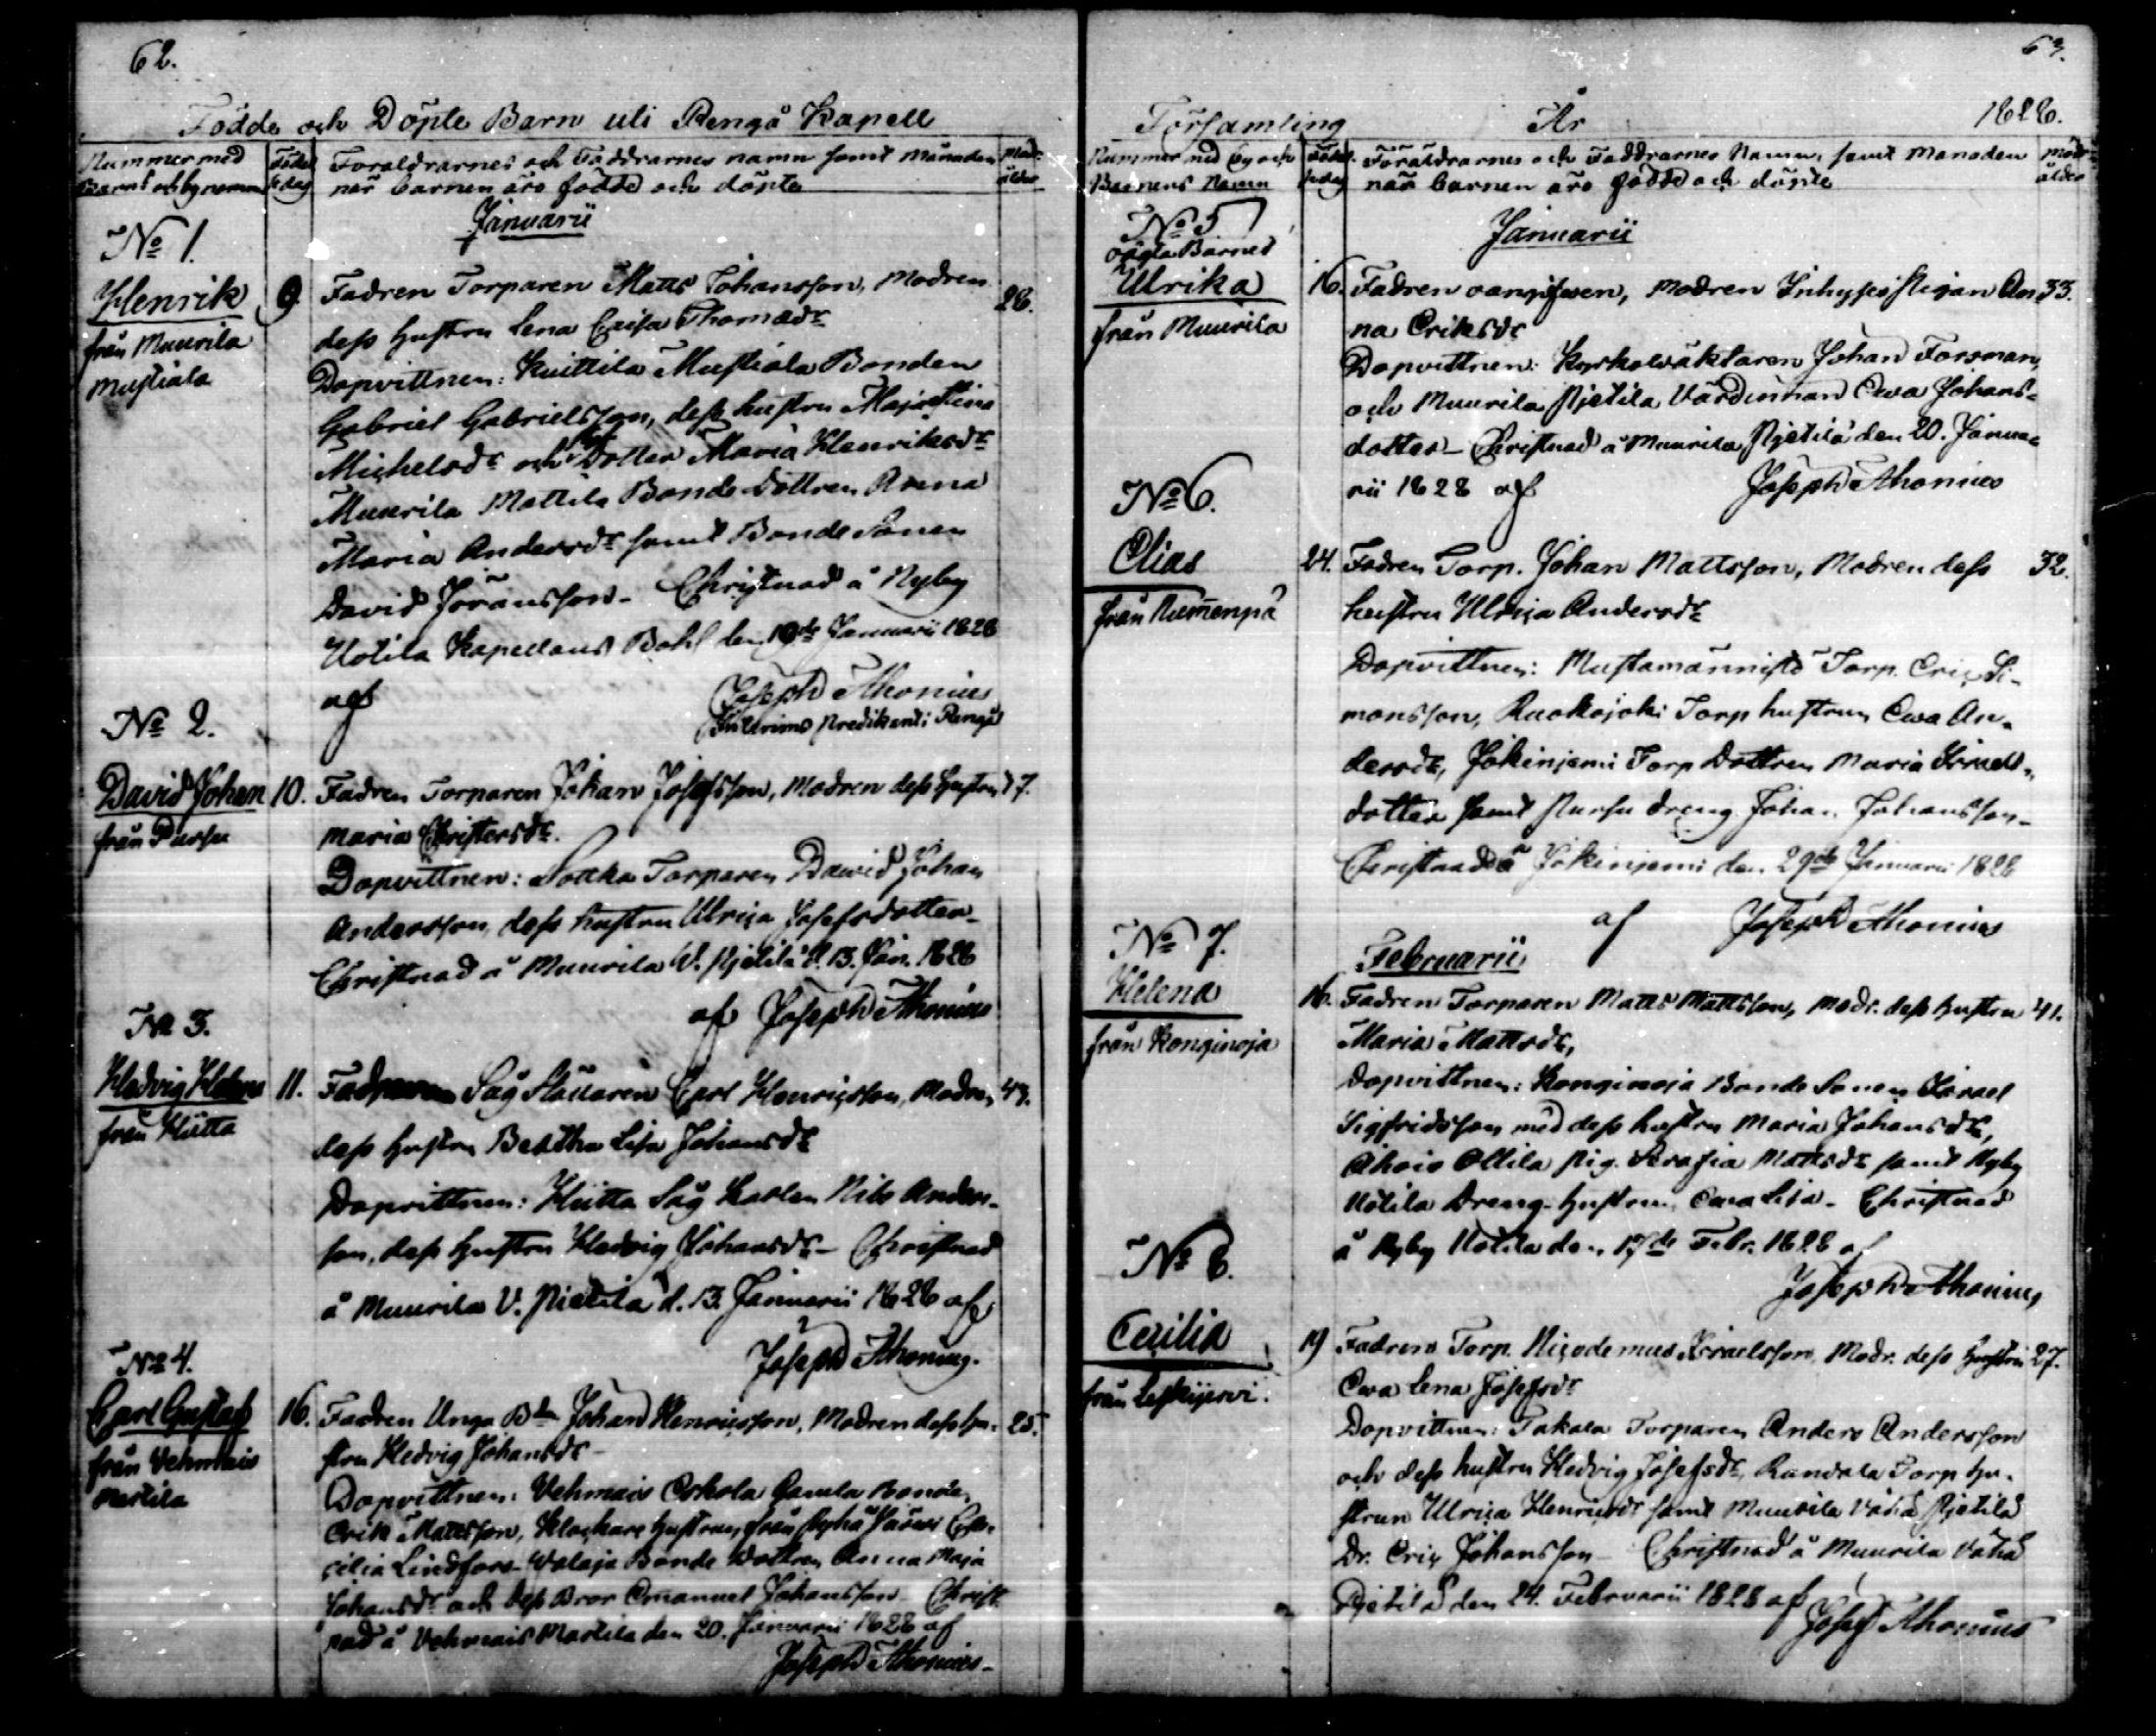 62.
Födde och Döpte Barn uti Rengå Kapell
Nummer med
Barnets och by namn
Födel
sedag
Föräldrarnes och Faddrarnes namn samt månaden
när barnen äro födde och döpte
Modr.
ålder
Januarii
No 1.
Henrik
från Muurila
Mustiala
9
Fadren Torparen Matts Johansson, Modren
28.
dess hustru Lena Caisa Thomædr
Dopvittnen: Kuittila Mustiala Bonden
Gabriel Gabrielsson, dess hustru Maja Stina
Michelsdr och Dotter Maria Henriksdr
Muurila Mattila Bonde Dottren
Maria Andersdr samt Bonde Sonen
David Jöransson - Christnad å Nyby
Uotila Kapellans Bohl den 10de Januarii 1828
af Joseph Ahonius
Interims Predikant i Rengå
No 2.
David Johan
från Pursu
10.
Fadren Torparen Johan Josefsson, Modren dess Hustru
Maria Christersdr.
Dopvittnen: Torparen David Johan
Andersson, dess hustru Ulrica Josefsdotter -
Christnad å Muurila W. Pjetilä d. 13. Jan. 1828
af Joseph Ahonius
No 3.
Hedvig Helena
från Hütta
11.
Såg Carl Henricsson, Modren
43.
dess hustru Beatha Lisa Johansdr
Dopvittnen: Hütta Såg Karlen Nils Anders-
son, dess hustru Hedvig Johansdr - Christnad
å Muurila V. Pietilä d. 13. Januarii 1828 af
Joseph Ahonius.
No 4.
Carl Gustaf
från Vehmais
Martila
16.
Fadren Unga Bdn Johan Henricsson, Modren dess hu-
25.
stru Hedvig Johansdr -
Dopvittnen: Vehmais Erkola Gamla Bonde
Erik Mattsson, Klockare hustrun från Ce-
cilia Lindfors Walaja Bonde Dottren Anna Maja
Johansdr och dess Bror Emanuel Johansson - Christ-
nad å Vehmais Martila den 20. Januarii 1828 af
Joseph Ahonius -
63.
Församling
År
1828.
Nummer med by och
Barnens Namn
Födel-
sedag
Föräldrarnes och Faddrarnes Namn, samt Månaden
när barnen äro födde och döpte
Modr
ålder
Januarii
No 5
oägta Barnet
Ulrika
från Muurila
16.
Fadren oangifven, Modren Inhyses Pigan An-
33.
na Eriksdr
Dopvittnen: Kyrkowäktaren Johan Forsman,
och Muurila Pjetila Värdinnan Ewa Johans-
dotter - Christnad å Muurila Pjetilä den 20. Janua-
rii 1828 af Joseph Ahonius
No 6.
Elias
från Rumenpä
24.
Fadren Torp. Johan Mattsson, Modren dess
32.
hustru Ulrica Andersdr
Dopvittnen: Mustamännistö Torp. Eric Si-
monsson, Ruokojoki Torp hustrun Ewa An-
dersdr, Jokinjemi Torp Dottren Maria Israels-
dotter samt Pursu dreng Johan Johansson -
Christnad å Jokinjemi den 29de Januarii 1828
af Joseph Ahonius
Februarii
No 7.
Helena
från Konginoja
16.
Fadren Torparen Matts Mattsson, Modr. dess hustru
41.
Maria Mattsdr,
Dopvittnen: Konginoja Bonde Sonen Israel
Sigfridsson med dess hustru Maria Johansdr,
Ahois Ollila Pig. Serafia Mattsdr samt Nyby
Uotila Dreng-hustrun, Ewa Lisa - Christnad
å Nyby Uotila den 17de Febr. 1828 af
Joseph Ahonius
No 8.
Cecilia
från Leskijervi.
19
Fadren Torp. Nicodemus Israelsson, Modr. dess Hustru
27.
Ewa Lena Josefsdr
Dopvittnen: Takala Torparen Anders Andersson
och dess hustru Hedvig Josefsdr, Randala Torp hu-
strun Ulrica Henricsdr samt Muurila Vähä Pjetilä
Dr. Eric Johansson - Christnad å Muurila Vähä
Pjetilä den 24. Februarii 1828 af
Josef Ahonius